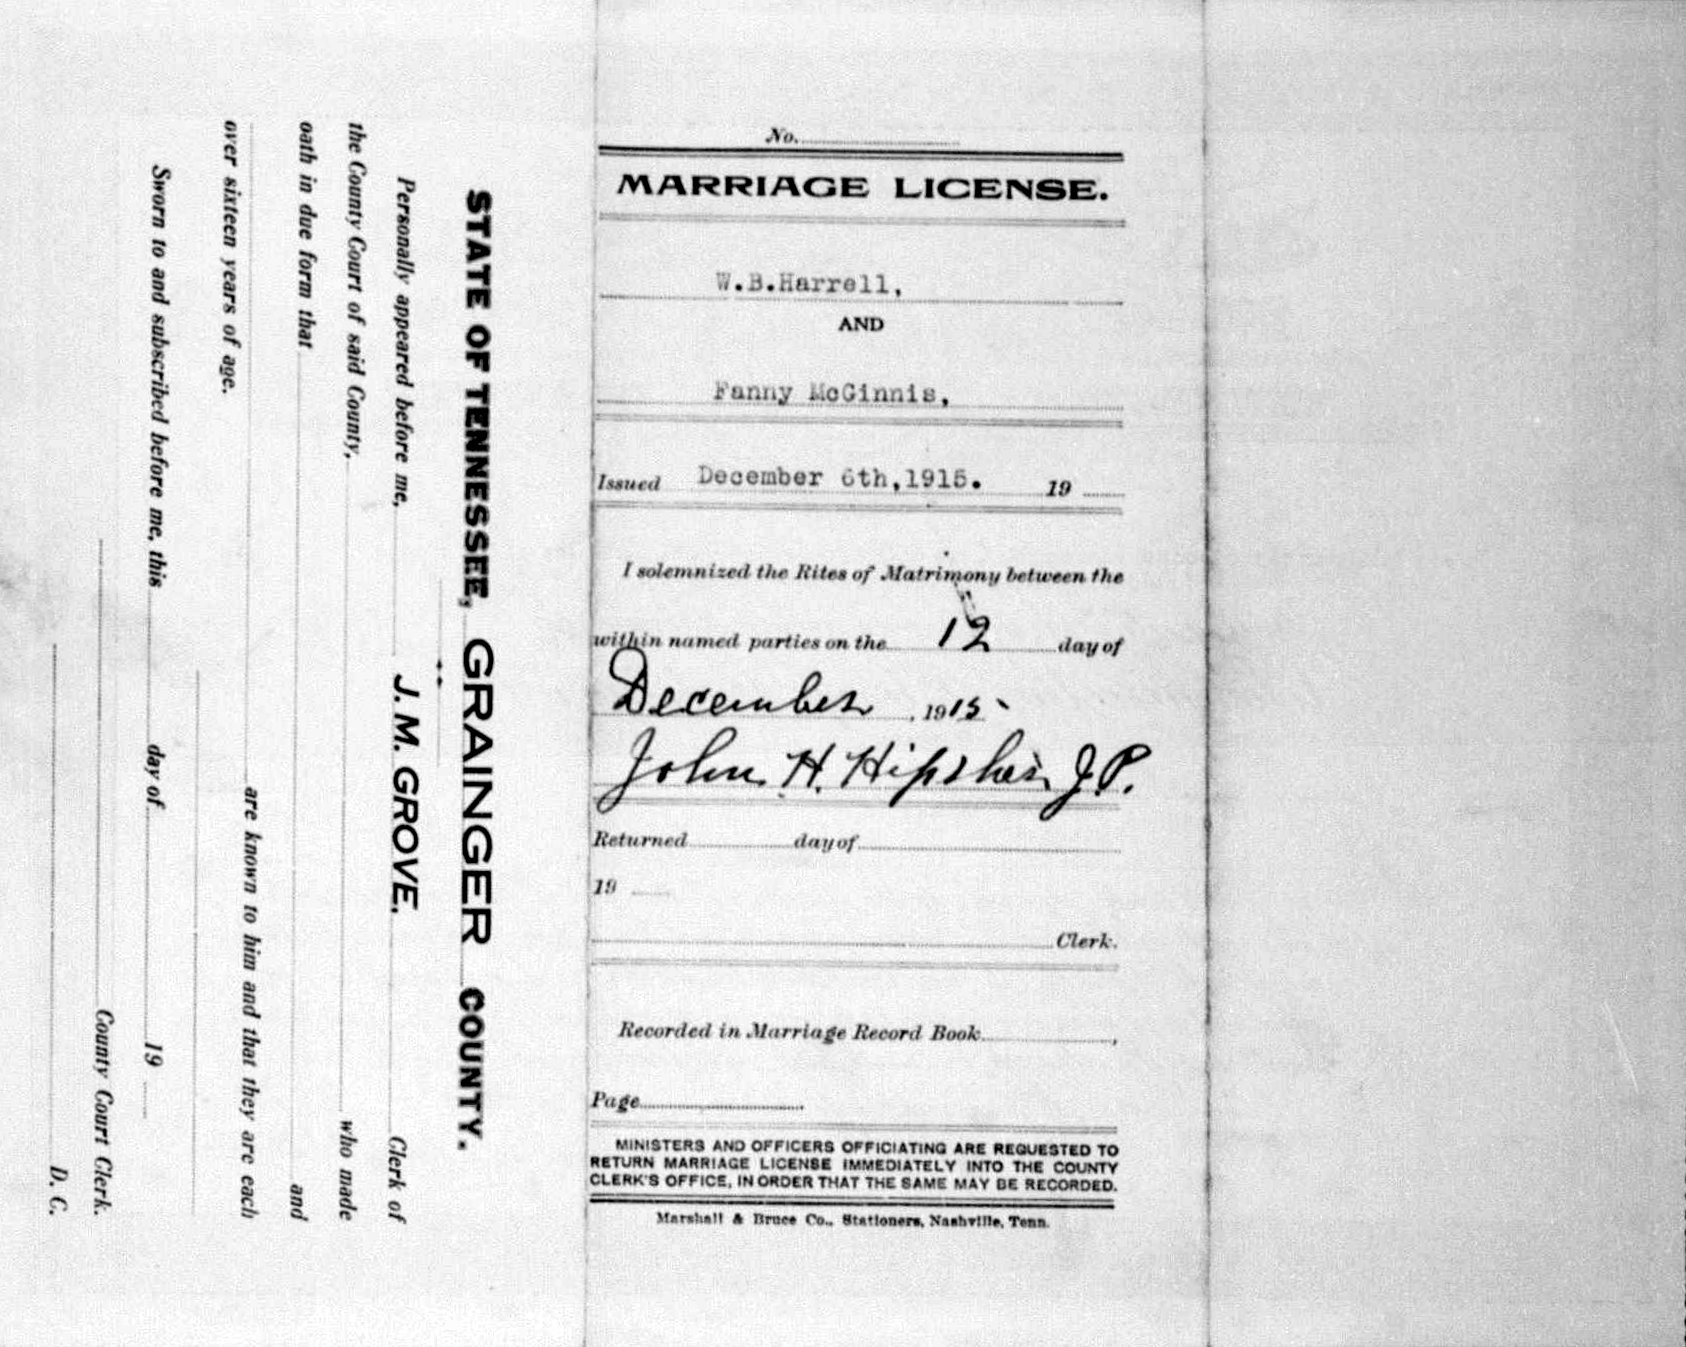 STATE OF TENNESSEE, GRAINGER COUNTY.
Personally appeared before me, J. M. GROVE. Clerk of
the County Court of said County, who made
oath in due form that and
are known to him and that they are each
over sixteen years of age.
Sworn to and subscribed before me, this day of 19
County Court Clerk.
D. C.
No.
MARRIAGE LICENSE.
W.B.Harrell,
AND
Fanny McGinnis,
Issued December 6th,1915. 19
I solemnized the Rites of Matrimony between the
within named parties on the 12 day of
December, 1915
John H. Hipsher J.P.
Returned day of
19
Clerk.
Recorded in Marriage Record Book ,
Page
MINISTERS AND OFFICERS OFFICIATING ARE REQUESTED TO
RETURN MARRIAGE LICENSE IMMEDIATELY INTO THE COUNTY
CLERK'S OFFICE, IN ORDER THAT THE SAME MAY BE RECORDED.
Marshall & Bruce Co., Stationers, Nashville, Tenn.